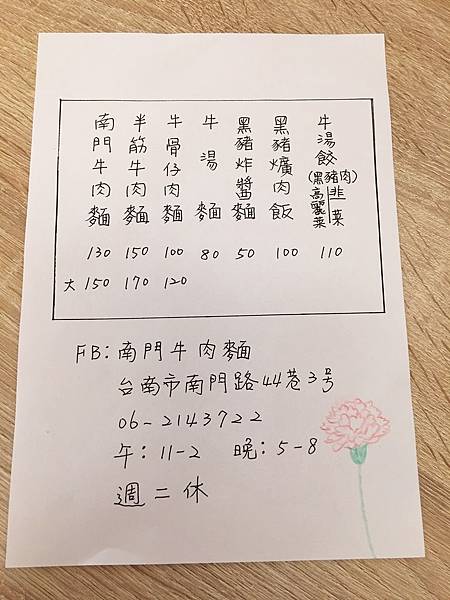 南門牛肉麵
130
大150
半筋牛肉麵
150
170
牛骨仔肉麵
100
120
牛湯麵
80
黑豬炸醬麵
50
黑豬爌肉飯
100
牛湯餃
(黑豬肉)
高麗菜
韭菜
110
FB:南門牛肉麵
台南市南門路44巷3号
06-2143722
午:11-2 晚:5-8
週二休